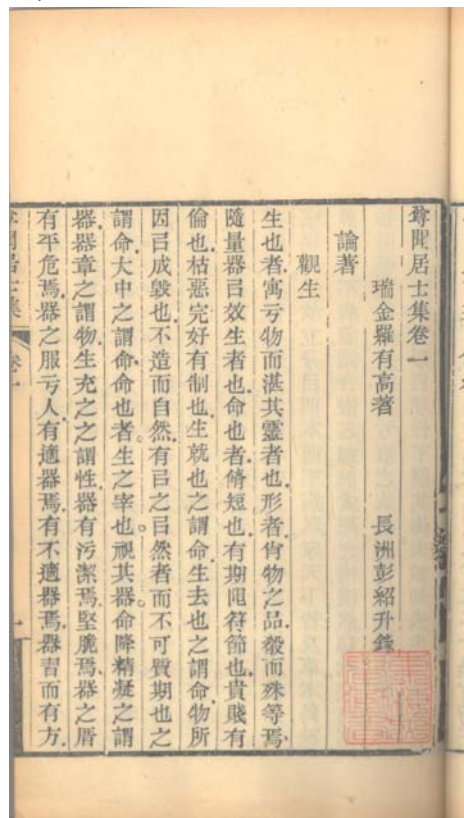 尊聞居士集卷一
瑞金羅有高著　長洲彭紹升錄
論著
觀生
生也者寓亏物而湛其靈者也形者肖物之品殽而殊等焉
隨量器㠯效生者也命也者脩短也有期限符節也貴賤有
倫也枯惡完好有制也生就也之謂命生去也之謂命物所
因㠯成毀也不造而自然有㠯之㠯然者而不可質期也之
謂命大中之謂命命也者生之宰也視其器命降精凝之謂
器器章之謂物生充之之謂性器有污潔焉堅脆焉器之厝
有平危焉器之服亏人有適器焉有不適器焉器習而有方
尊聞居士集
卷一
一